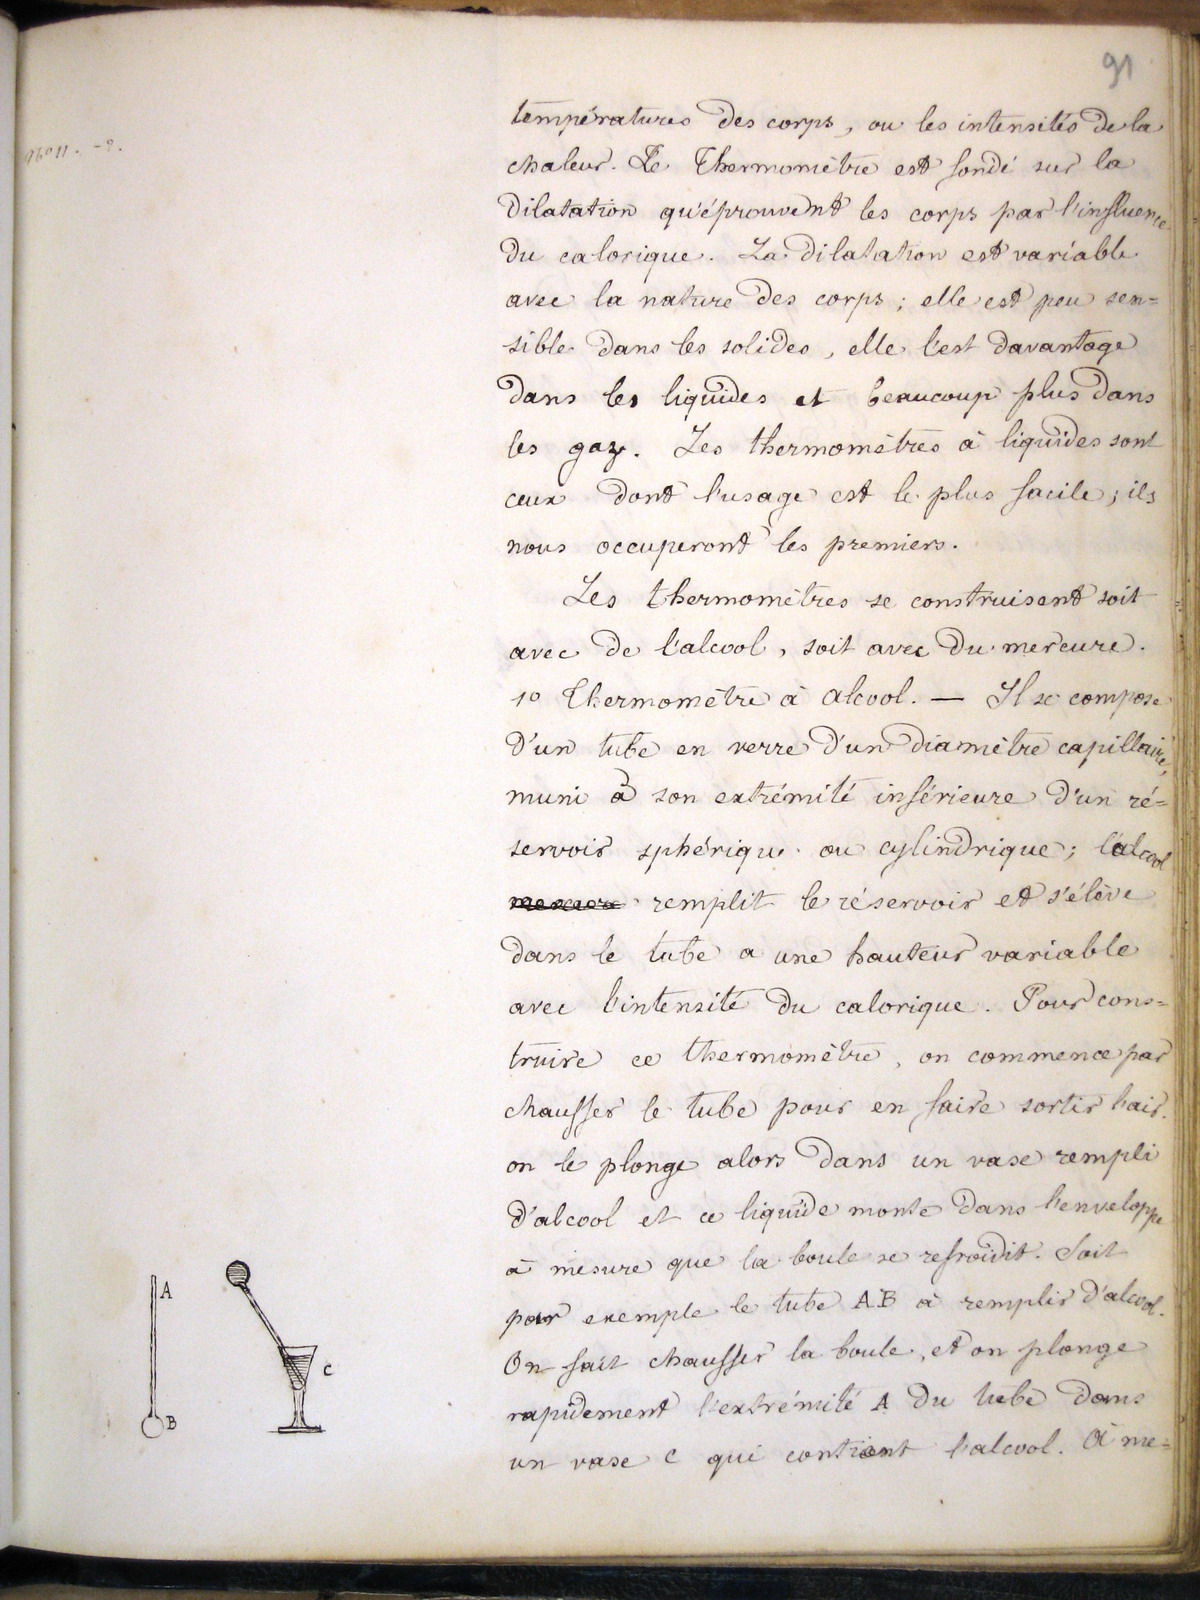 91
températures des corps, ou les intensités de la
chaleur. Le Thermomètre est fondé sur la
dilatation qu'éprouvent les corps par l'influence
du calorique. La dilatation est variable
avec la nature des corps ; elle est peu sen=
sible dans les solides, elle l'est davantage
dans les liquides et beaucoup plus dans
les gaz. Les thermomètres à liquides sont
ceux dont l'usage est le plus facile ; ils
nous occuperont les premiers.
Les thermomètres se construisent soit
avec de l'alcool, soit avec du mercure.
1º Thermomètre à alcool. — Il se compose
d'un tube en verre d'un diamètre capillaire,
muni à son extrémité inférieure d'un ré=
servoir sphérique ou cylindrique ; l'alcool
remplit le réservoir et s'élève
dans le tube a une hauteur variable
avec l'intensité du calorique. Pour cons=
truire ce thermomètre, on commence par
chauffer le tube pour en faire sortir l'air.
on le plonge alors dans un vase rempli
d'alcool et ce liquide monte dans l'enveloppe
à mesure que la boule se refroidit. Soit
par exemple le tube AB à remplir d'alcool.
On fait chauffer la boule, et on plonge
rapidement l'extrémité A du tube dans
un vase C qui contient l'alcool. A me=
A
B
C